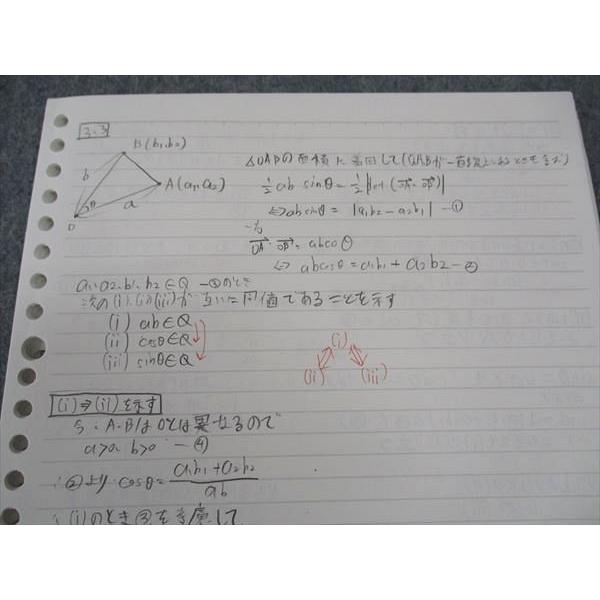 3.3
B(b₁,b₂)
b
A(a₁,a₂)
θ
a
O
△OABの面積に着目して(O,A,Bが一直線上にあるときも含む)
1/2 ab sinθ = 1/2 |det(OA, OB)|
⇔ ab sinθ = |a₁b₂ - a₂b₁| -①
一方
OA・OB = ab cosθ
⇔ ab cosθ = a₁b₁ + a₂b₂ -②
a₁.a₂.b₁.b₂∈Q -③のとき
次の(i),(ii),(iii)が互いに同値であることを示す
(i) ab∈Q
(ii) cosθ∈Q
(iii) sinθ∈Q
(i)
(ii)
(iii)
(i)⇒(ii)を示す
今:A.BはOとは異なるので
a>0 b>0 -④
∴②より cosθ = (a₁b₁+a₂b₂)/ab
∴(i)のとき③を考慮して